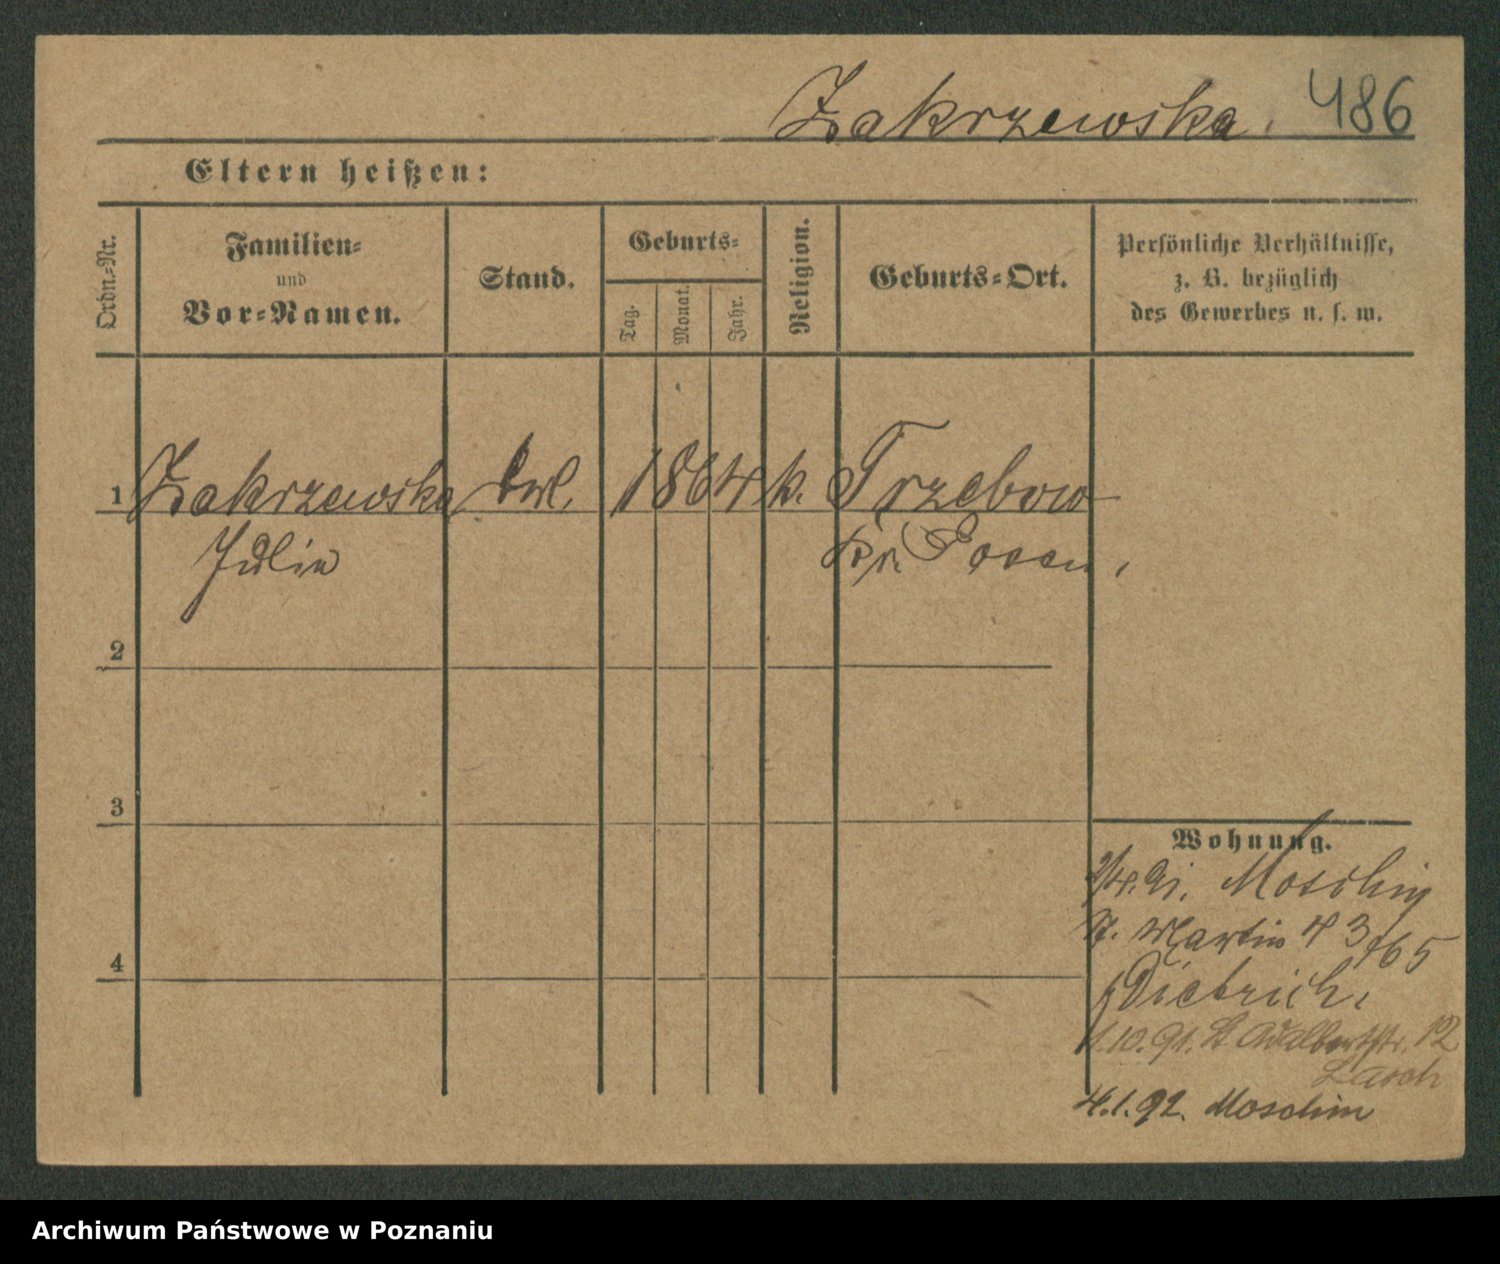 Zakrzewska. 486
Eltern heißen:
Ordn.-Nr.
Familien-
und
Vor-Namen.
Stand.
Geburts-
Tag.
Monat.
Jahr.
Religion.
Geburts-Ort.
Persönliche Verhältnisse,
z. B. bezüglich
des Gewerbes u. s. w.
1 Zakrzewska 1864 k. Trzebow
Julie Kr. Posen,
2
3
4
Wohnung.
2/4.91. Moschin
St. Martin 43 765
Dietrich.
1.10.91. St Adalbertstr. 12
Lasch
4.1.92. Moschin
Archiwum Państwowe w Poznaniu